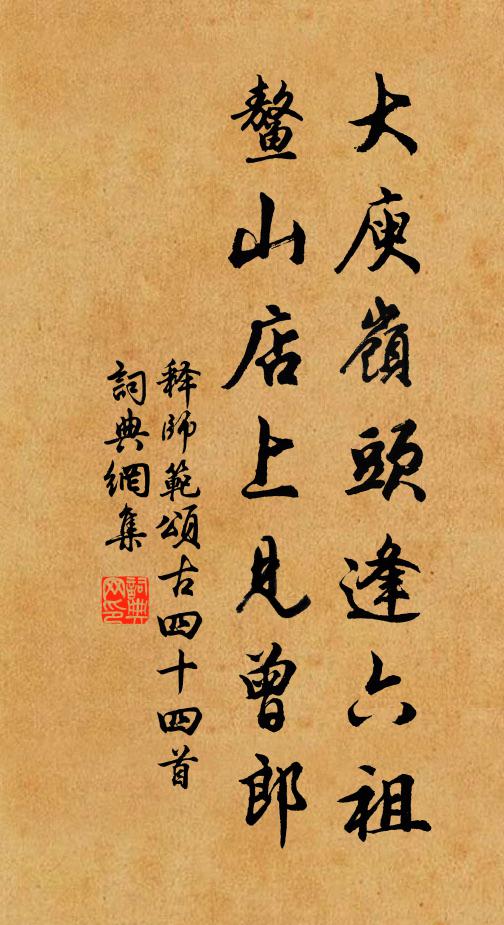 大庾嶺頭逢六祖
鰲山店上見曾郎
释師範頌古四十四首
詞典網集
詞典網印